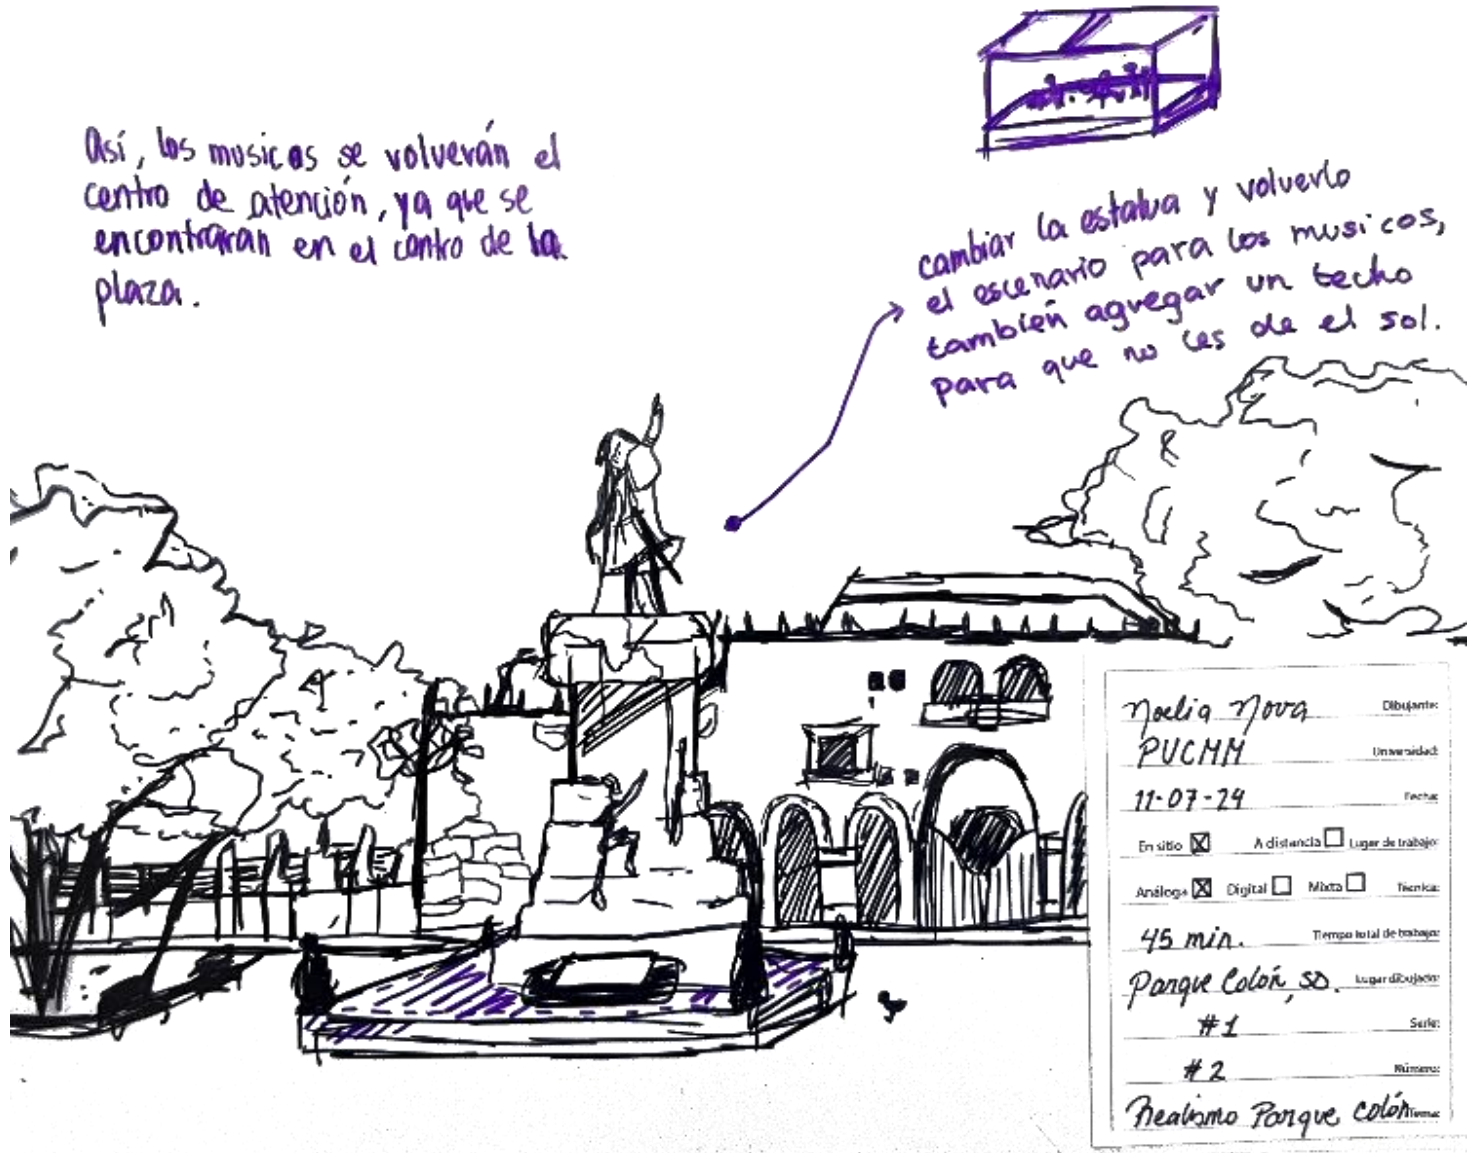 Así, los musicos se volverán el
centro de atención, ya que se
encontraran en el centro de la
plaza.
cambiar la estatua y volverlo
el escenario para los musicos,
también agregar un techo
para que no les de el sol.
Noelia Nova Dibujante:
PUCMM Universidad:
11-07-24 Fecha:
En sitio A distancia Lugar de trabajo:
Análoga Digital Mixta Técnica:
45 min. Tiempo total de trabajo:
Parque Colón, SD. Lugar dibujado:
#1 Serie:
#2 Número:
Realismo Parque Colón Tema: